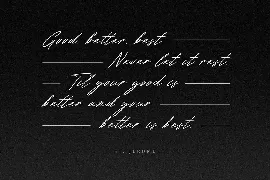 Good, better, best
Never let it rest.
'Til your good is
better and your
better is best.